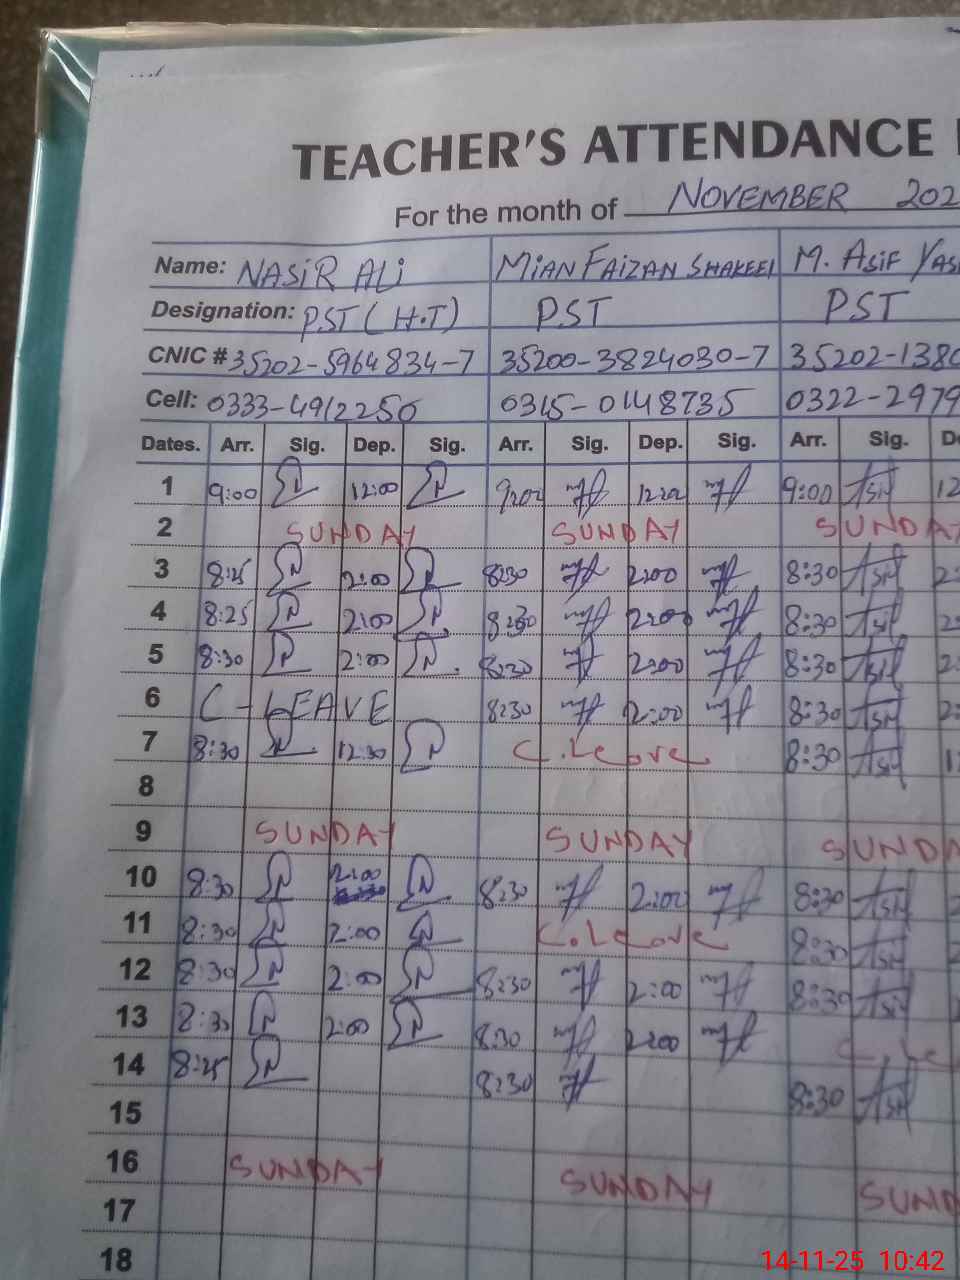 TEACHER'S ATTENDANCE
For the month of NOVEMBER 202
Name: NASIR ALI MIAN FAIZAN SHAKEEL M. ASIF YAS
Designation: PST (H.T) PST PST
CNIC # 35202-5964834-7 35200-3824030-7 35202-1380
Cell: 0333-4912250 0315-0148735 0322-2979
Dates. Arr. Sig. Dep. Sig. Arr. Sig. Dep. Sig. Arr. Sig. De
1 9:00 12:00 9:00 12:00 9:00 12
2 SUNDAY SUNDAY SUNDAY
3 8:25 2:00 8:30 2:00 8:30 2:
4 8:25 2:00 8:30 2:00 8:30 2:
5 8:30 2:00 8:30 2:00 8:30 2:
6 C-LEAVE 8:30 2:00 8:30 2:
7 8:30 12:30 C.Leave 8:30 1
8
9 SUNDAY SUNDAY SUNDA
10 8:30 2:00 8:30 2:00 8:30
11 8:30 2:00 C.Leave 8:30
12 8:30 2:00 8:30 2:00 8:30
13 8:30 2:00 8:30 2:00 C.Le
14 8:25 8:30 8:30
15
16 SUNDAY SUNDAY SUND
17
18
14-11-25 10:42